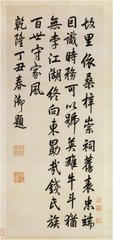 故里依桑梓崇祠舊表忠端
因識時務可以號英雄牛斗猶
無孛江湖終向東勗哉錢氏族
百世守家風
乾隆丁丑春御題